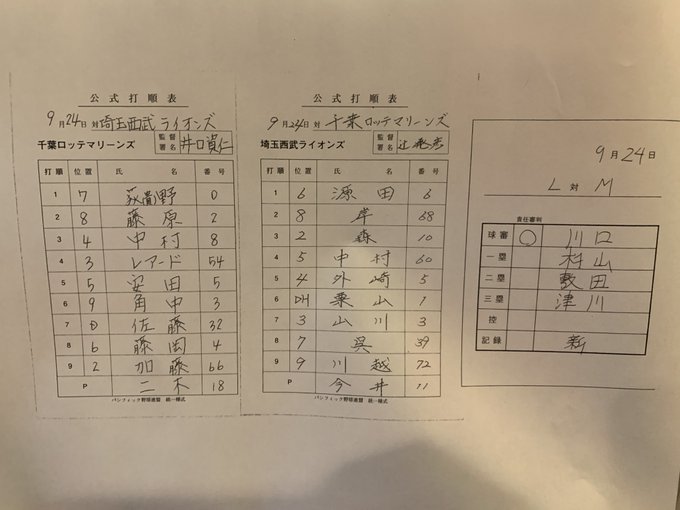 公式打順表
9月24日 対 埼玉西武ライオンズ
千葉ロッテマリーンズ 監督署名 井口資仁
打順 位置 氏名 番号
1 7 荻貴野 0
2 8 藤原 2
3 4 中村 8
4 3 レアード 54
5 5 安田 5
6 9 角中 3
7 D 佐藤 32
8 6 藤岡 4
9 2 加藤 66
P 二木 18
パシフィック野球連盟 統一様式
公式打順表
9月24日 対 千葉ロッテマリーンズ
埼玉西武ライオンズ 監督署名 辻発彦
打順 位置 氏名 番号
1 6 源田 6
2 8 岸 68
3 2 森 10
4 5 中村 60
5 4 外崎 5
6 DH 栗山 1
7 3 山川 3
8 7 呉 39
9 9 川越 72
P 今井 11
パシフィック野球連盟 統一様式
9月24日
L 対 M
責任審判
球審 ○ 川口
一塁 杉山
二塁 敷田
三塁 津川
控
記録 新